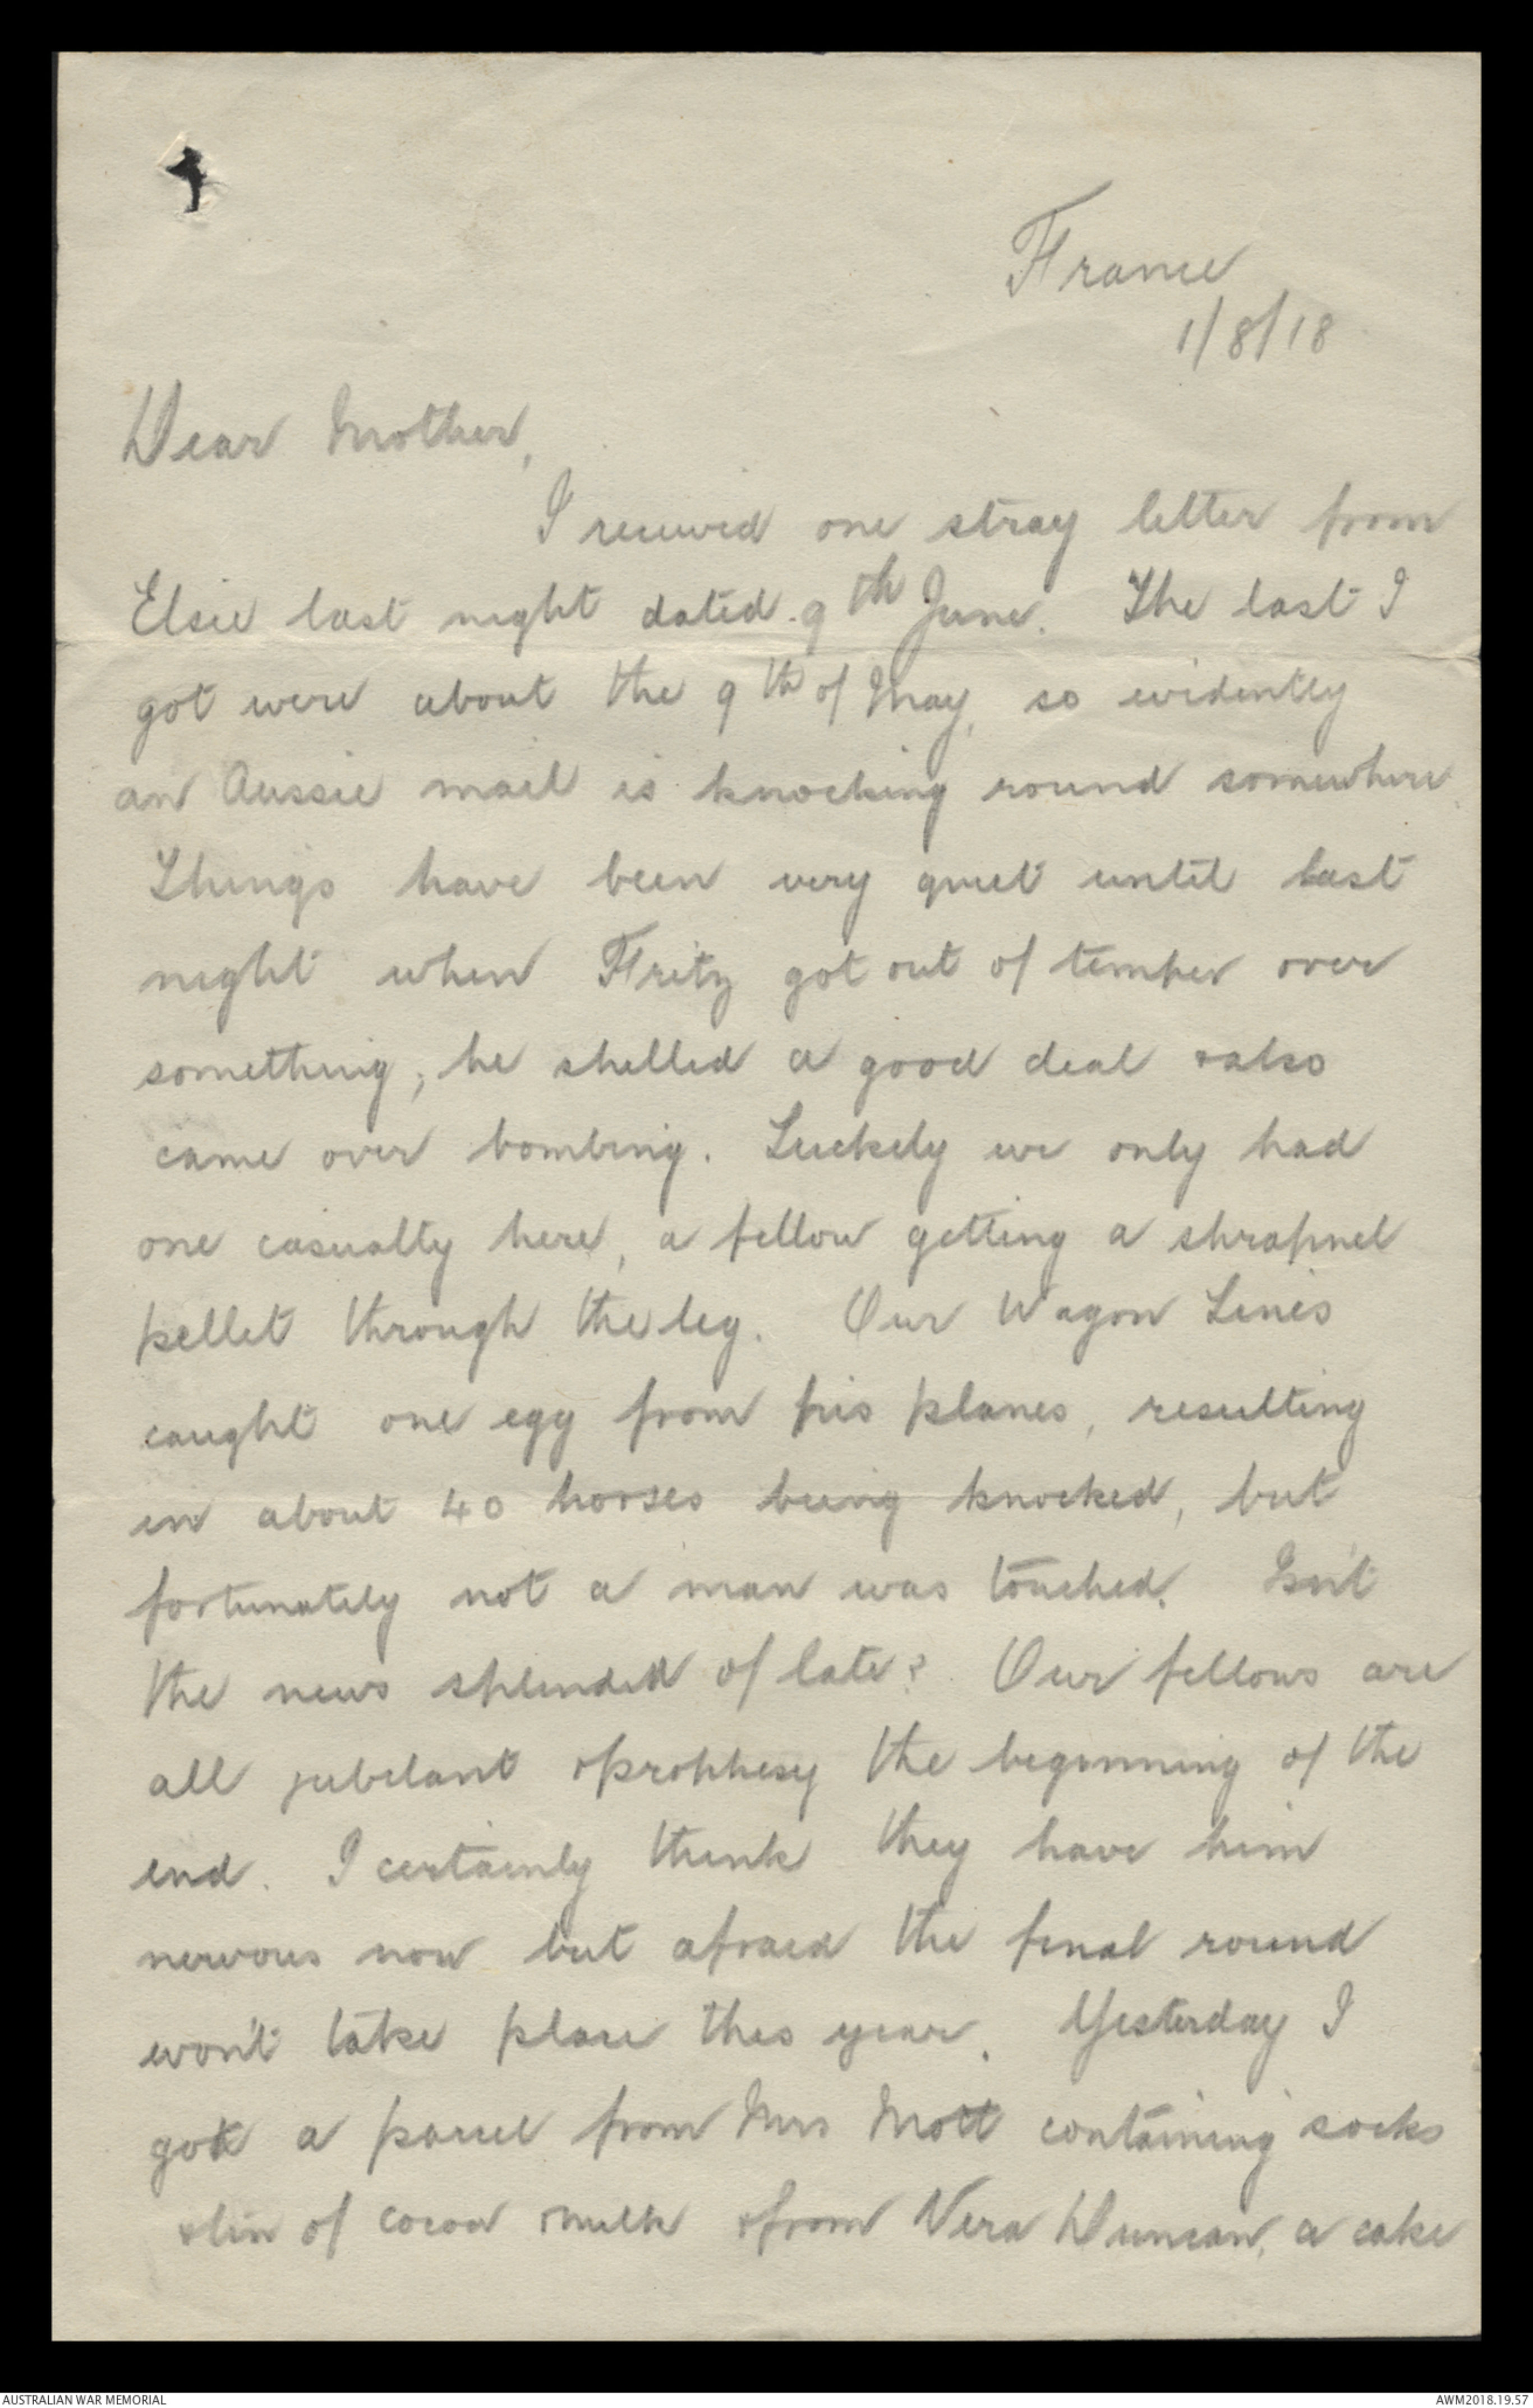 France
1/8/18
Dear Mother,
I received one stray letter from
Elsie last night dated 9th June. The last I
got were about the 9th of May, so evidently
an Aussie mail is knocking round somewhere.
Things have been very quiet until last
night when Fritz got out of temper over
something; he shelled a good deal & also
came over bombing. Luckily we only had
one casualty here, a fellow getting a shrapnel
pellet through the leg. Our Wagon Lines
caught one egg from his planes, resulting
in about 40 horses being knocked, but
fortunately not a man was touched. Isn't
the news splendid of late? Our fellows are
all jubilant & prophesy the beginning of the
end. I certainly think they have him
nervous now but afraid the final round
won't take place this year. Yesterday I
got a parcel from Mrs Mott containing socks
& tin of cocoa & milk & from Vera Duncan, a cake
AUSTRALIAN WAR MEMORIAL
AWM2018.19.57